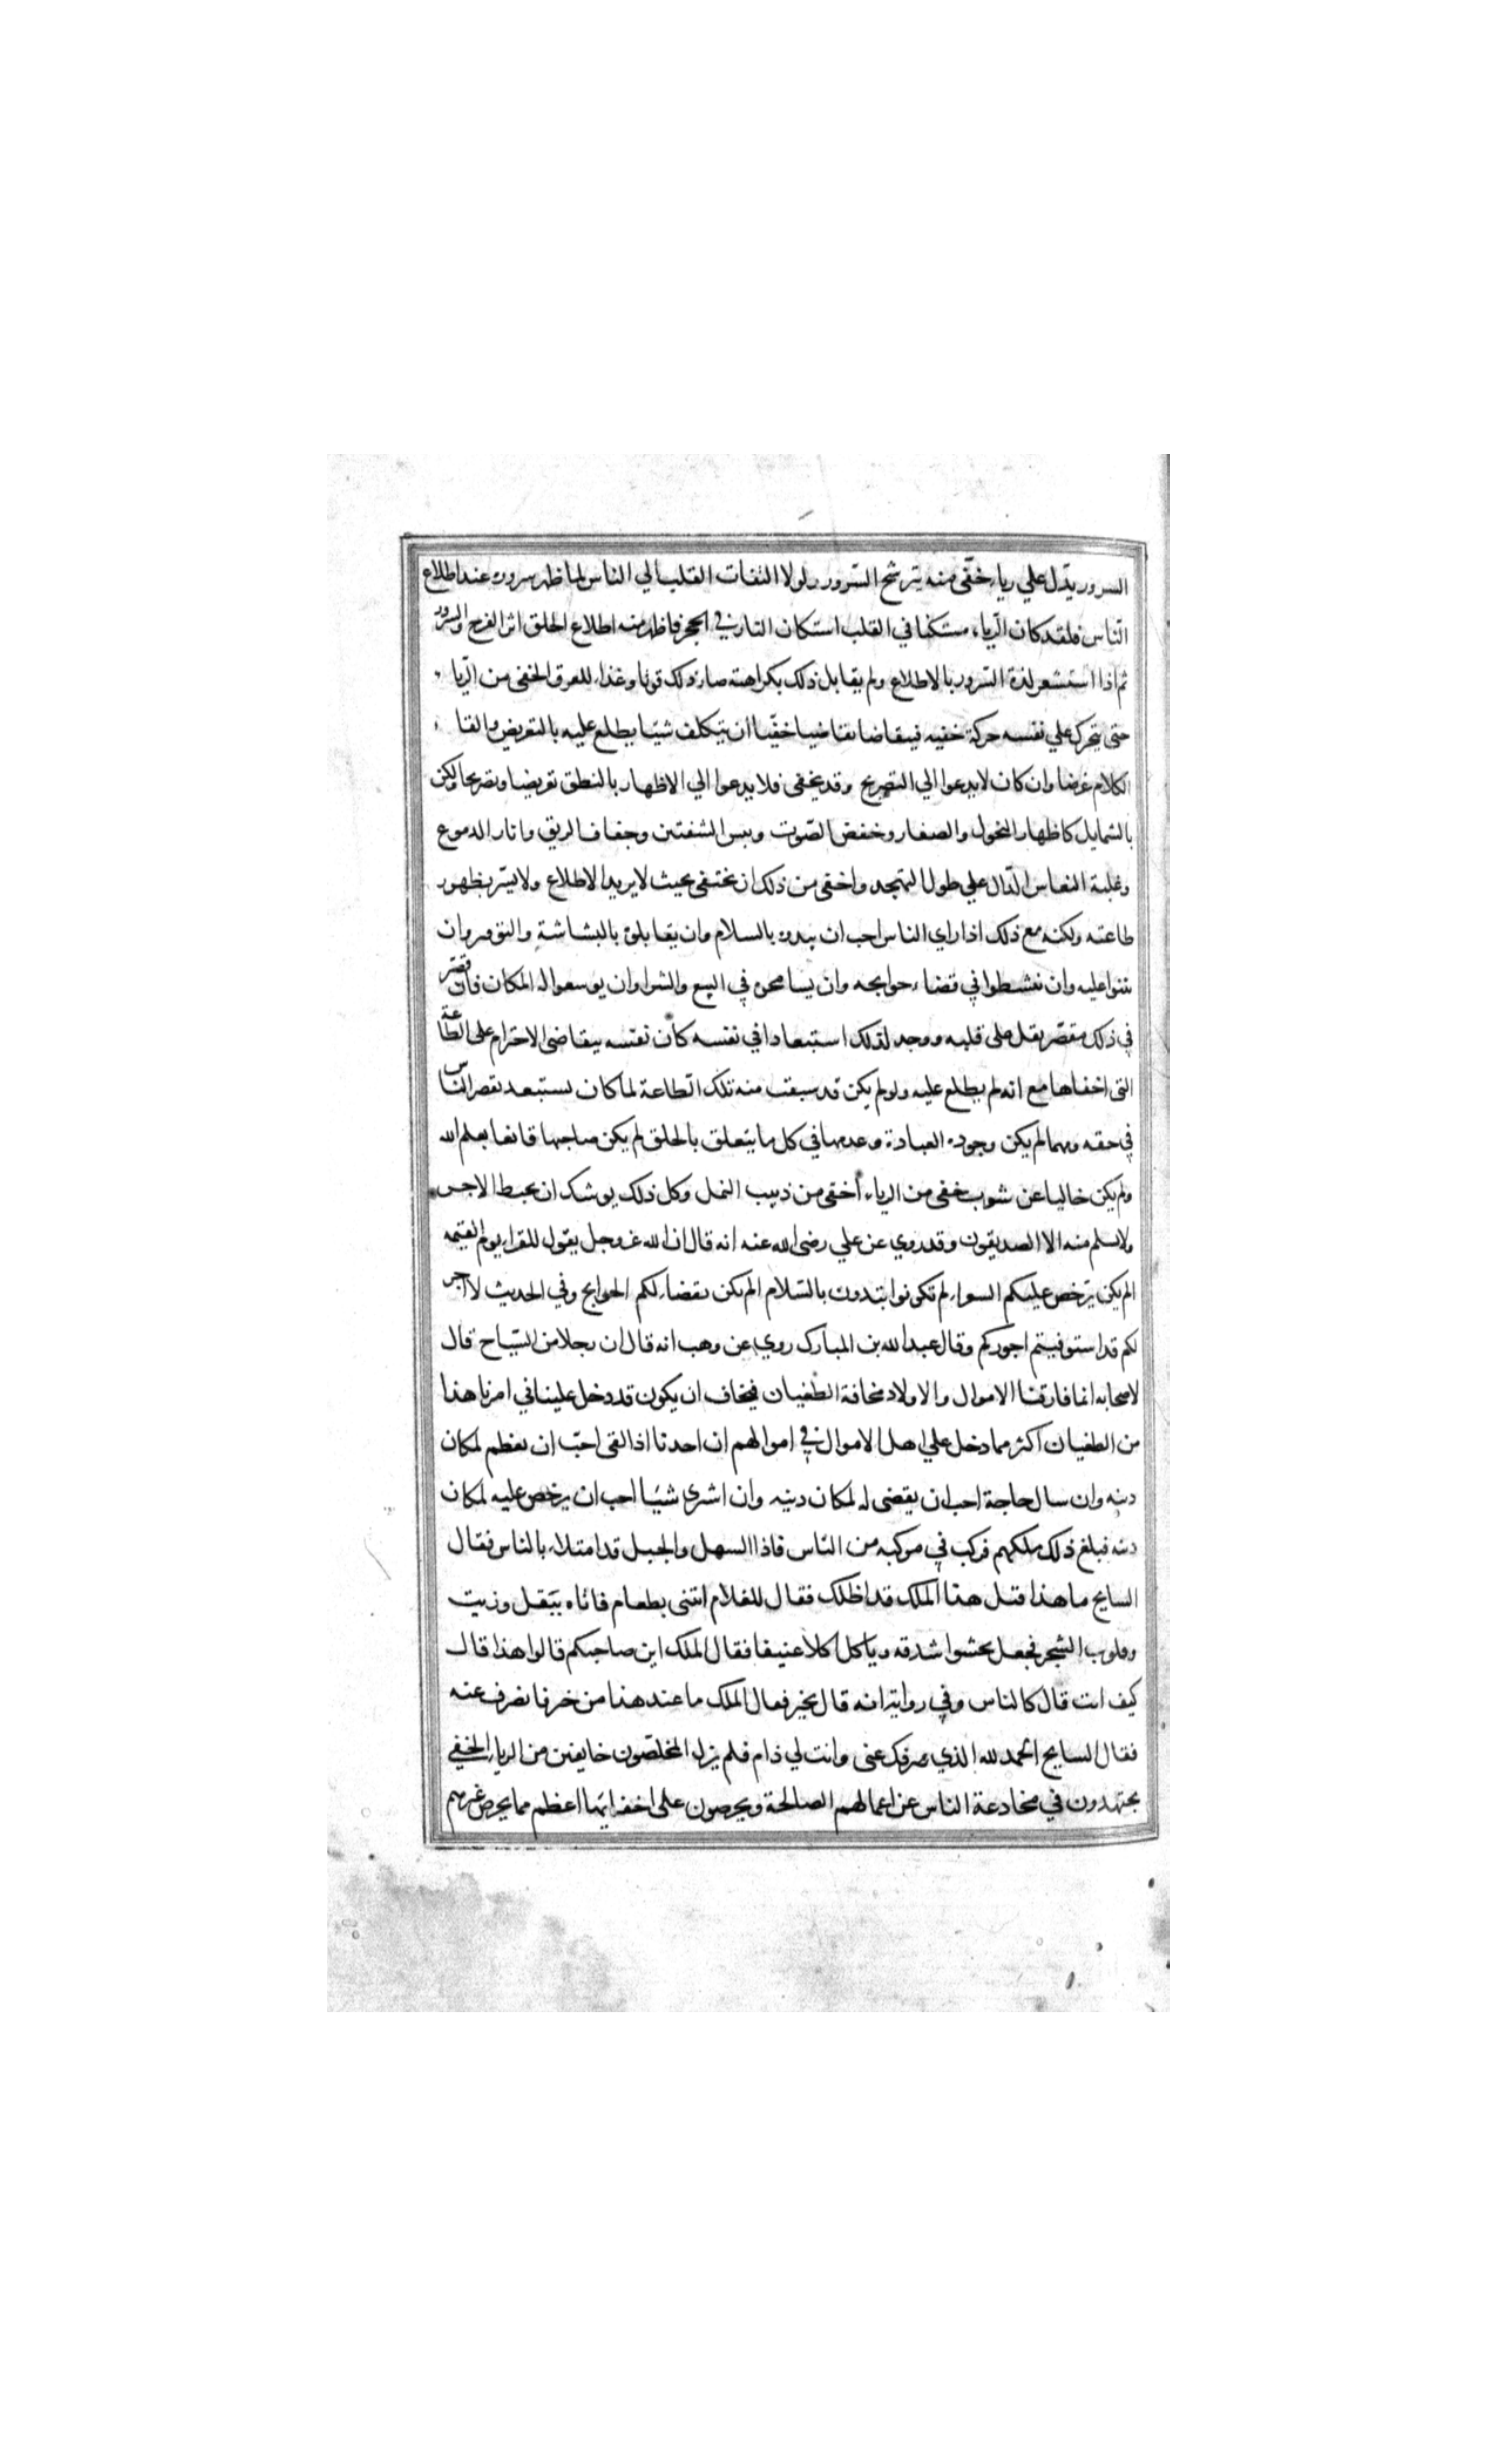 السرور يدّل علي رياء خفّى منه يترشح السّرور ولولا التفات القلب الي الناس لما ظهر سروره عند اطلاع
النّاس فلقد كان الرّياء مستكنا في القلب استكان النار في الحجر فاظهر منه اطلاع الخلق اثر الفرح والسرور
ثم اذا استشعر لذة السّرور بالاطلاع ولم يقابل ذلك بكراهته صار ذلك قوتا وغذاء للعرق الخفى من الرّيا
حتى يتحرك علي نفسه حركة خفيه فيتقاضا تقاضيا خفيّا ان يتكلف شيئا يطلع عليه بالتعريض والقا
الكلام عرضا وان كان لا يدعوا الي التصريح وقد يخفى فلا يدعوا الي الاظهار بالنطق تعريضا وتصريحا ولكن
بالشمايل كاظهار النحول والصفار وخفض الصّوت ويبس الشفتين وجفاف الريق واثار الدموع
وغلبة النعاس الدّال علي طول التهجد واخفى من ذلك ان يختفى بحيث لا يريد الاطلاع ولا يسّر بظهور
طاعته ولكنه مع ذلك اذا راي الناس احب ان يبدوه بالسلام وان يقابلوه بالبشاشة والتوقير وان
يثنوا عليه وان ينشطوا في قضاء حوايجه وان يسامحوه في البيع والشرا وان يوسعوا له المكان فان قصّر
في ذلك مقصّر ثقل على قلبه ووجد لذلك استبعادا في نفسه كان نفسه يتقاضى الاحترام على الطّاعة
التى اخفاها مع انه لم يطلع عليه ولو لم يكن قد سبقت منه تلك الطّاعة لما كان يستبعد تقصير النّاس
في حقه ومهما لم يكن وجوده العبادة وعدمها في كل ما يتعلق بالخلق لم يكن صاحبها قانعا بعلم الله
ولم يكن خاليا عن شوب خفى من الرياء أخفى من دبيب النمل وكل ذلك يوشك ان يحبط الاجر
ولا يسلم منه الا الصديقون وقد روي عن علي رضى الله عنه انه قال ان الله عز وجل يقول للقراء يوم القيمه
الم يكن يرخص عليكم السواء لم تكونوا تبتدون بالسّلام الم يكن يقضاء لكم الحوايج وفي الحديث لا اجر
لكم قد استوفيتم اجوركم وقال عبد الله بن المبارك روي عن وهب انه قال ان رجلا من السّياح قال
لاصحابه انما فارقنا الاموال والاولاد مخافة الطغيان فنخاف ان يكون قد دخل علينا في امرنا هذا
من الطغيان اكثر مما دخل علي اهل الاموال في اموالهم ان احدنا اذا لقى احبّ ان يعظم لمكان
دينه وان سال حاجة احب ان يقضى له لمكان دينه وان اشترى شيئا احب ان يرخص عليه لمكان
دينه فبلغ ذلك ملكهم فركب في موكبه من النّاس فاذا السهل والجبل قد امتلاء بالناس فقال
السايح ما هذا قيل هذا الملك قد اظلك فقال للغلام ائتنى بطعام فاتاه ببقل وزيت
وقلوب الشجر فجعل يحشوا شدقه وياكل اكلا عنيفا فقال الملك اين صاحبكم قالوا هذا قال
كيف انت قال كالناس وفي رواية انه قال بخير فقال الملك ما عند هذا من خير فانصرف عنه
فقال السايح الحمد لله الذي صرفك عنى وانت لي ذام فلم يزل المخلصون خايفين من الرياء الخفي
يجتهدون في مخادعة الناس عن اعمالهم الصالحة ويحرصون على اخفائها اعظم مما يحرص غيرهم